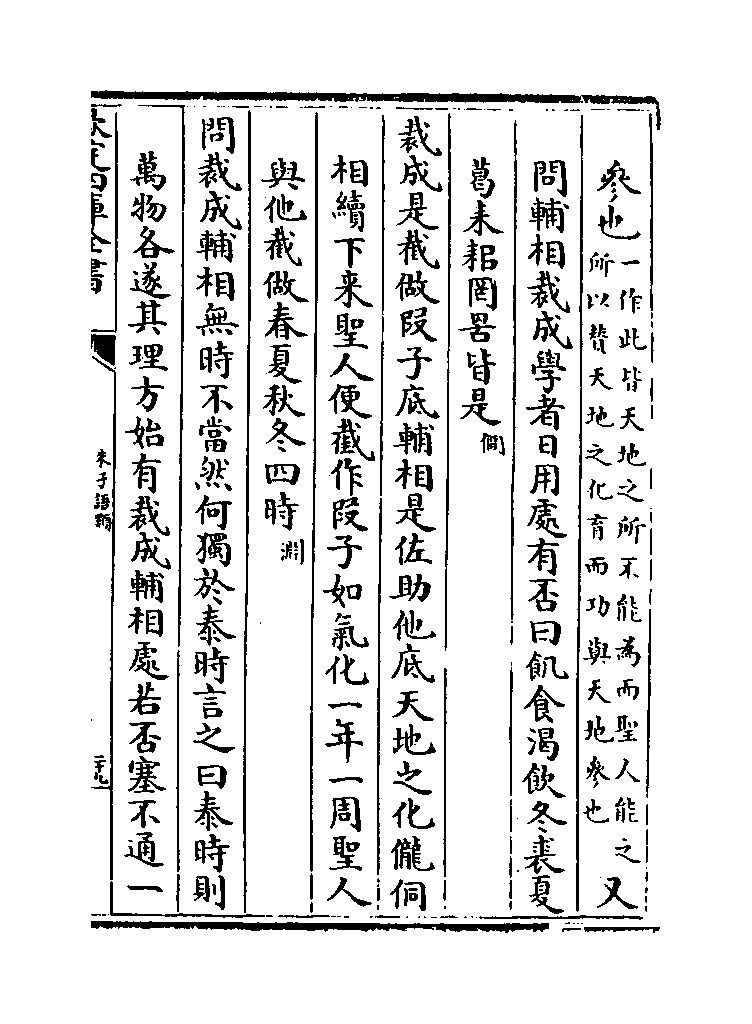 參也一作此皆天地之所不能為而聖人能之所以贊天地之化育而功與天地參也又
問輔相裁成學者日用處有否曰飢食渴飲冬裘夏
葛耒耜罔罟皆是僩
裁成是截做段子底輔相是佐助他底天地之化儱侗
相續下來聖人便截作段子如氣化一年一周聖人
與他截做春夏秋冬四時淵
問裁成輔相無時不當然何獨於泰時言之曰泰時則
萬物各遂其理方始有裁成輔相處若否塞不通一
欽定四庫全書
朱子語類
二十九